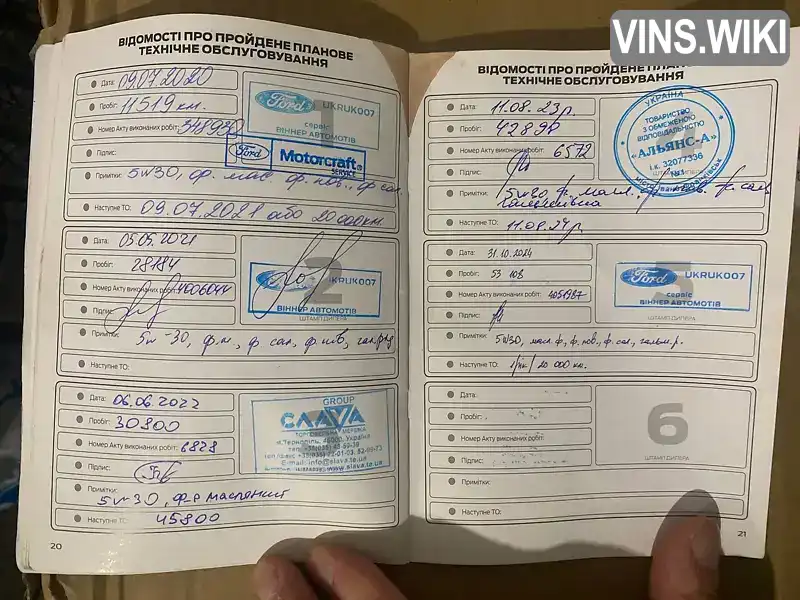 VINS.WIKI
ВІДОМОСТІ ПРО ПРОЙДЕНЕ ПЛАНОВЕ
ТЕХНІЧНЕ ОБСЛУГОВУВАННЯ
Дата: 09.07.2020
Пробіг: 11519 км.
Номер Акту виконаних робіт:
Підпис:
Примітки: 5w30, ф. мас. ф. пов., ф сал.
Наступне ТО: 09.07.2021 або 20 000км.
Ford UKRUK007
сервіс
ВІННЕР АВТОМОТІВ
Ford Motorcraft
SERVICE
Дата: 05.05.2021
Пробіг: 28184
Номер Акту виконаних робіт:
Підпис:
Примітки: 5w-30, ф.м., ф сал, ф.пов,
Наступне ТО:
2
Ford UKRUK007
ВІННЕР АВТОМОТІВ
ШТАМП ДИЛЕРА
Дата: 06.06.2022
Пробіг: 30800
Номер Акту виконаних робіт: 6828
Підпис:
Примітки:
5w-30, ф-р масляний
Наступне ТО: 45800
GROUP
СЛАВА
ТОРГОВЕЛЬНА МЕРЕЖА
м.Тернопіль, 46000, Україна
E-mail: info@slava.te.ua
www.slava.te.ua
20
ВІДОМОСТІ ПРО ПРОЙДЕНЕ ПЛАНОВЕ
ТЕХНІЧНЕ ОБСЛУГОВУВАННЯ
Дата: 11.08.23р.
Пробіг:
Номер Акту виконаних робіт: 6572
Підпис:
Примітки: 5w20 ф. масл.
Наступне ТО: 11.08.24р
УКРАЇНА
ТОВАРИСТВО
З ОБМЕЖЕНОЮ
ВІДПОВІДАЛЬНІСТЮ
«АЛЬЯНС-А»
і.к. 32077336
Дата: 31.10.2024
Пробіг: 53 108
Номер Акту виконаних робіт: 4051987
Підпис:
Примітки: 5w30, масл. ф, ф. пов., ф. сал., гальм. р.
Наступне ТО: 1 рік / 20 000 км.
5
Ford UKRUK007
сервіс
ВІННЕР АВТОМОТІВ
ШТАМП ДИЛЕРА
Дата:
Пробіг:
Номер Акту виконаних робіт:
Підпис:
Примітки:
Наступне ТО:
6
ШТАМП ДИЛЕРА
21